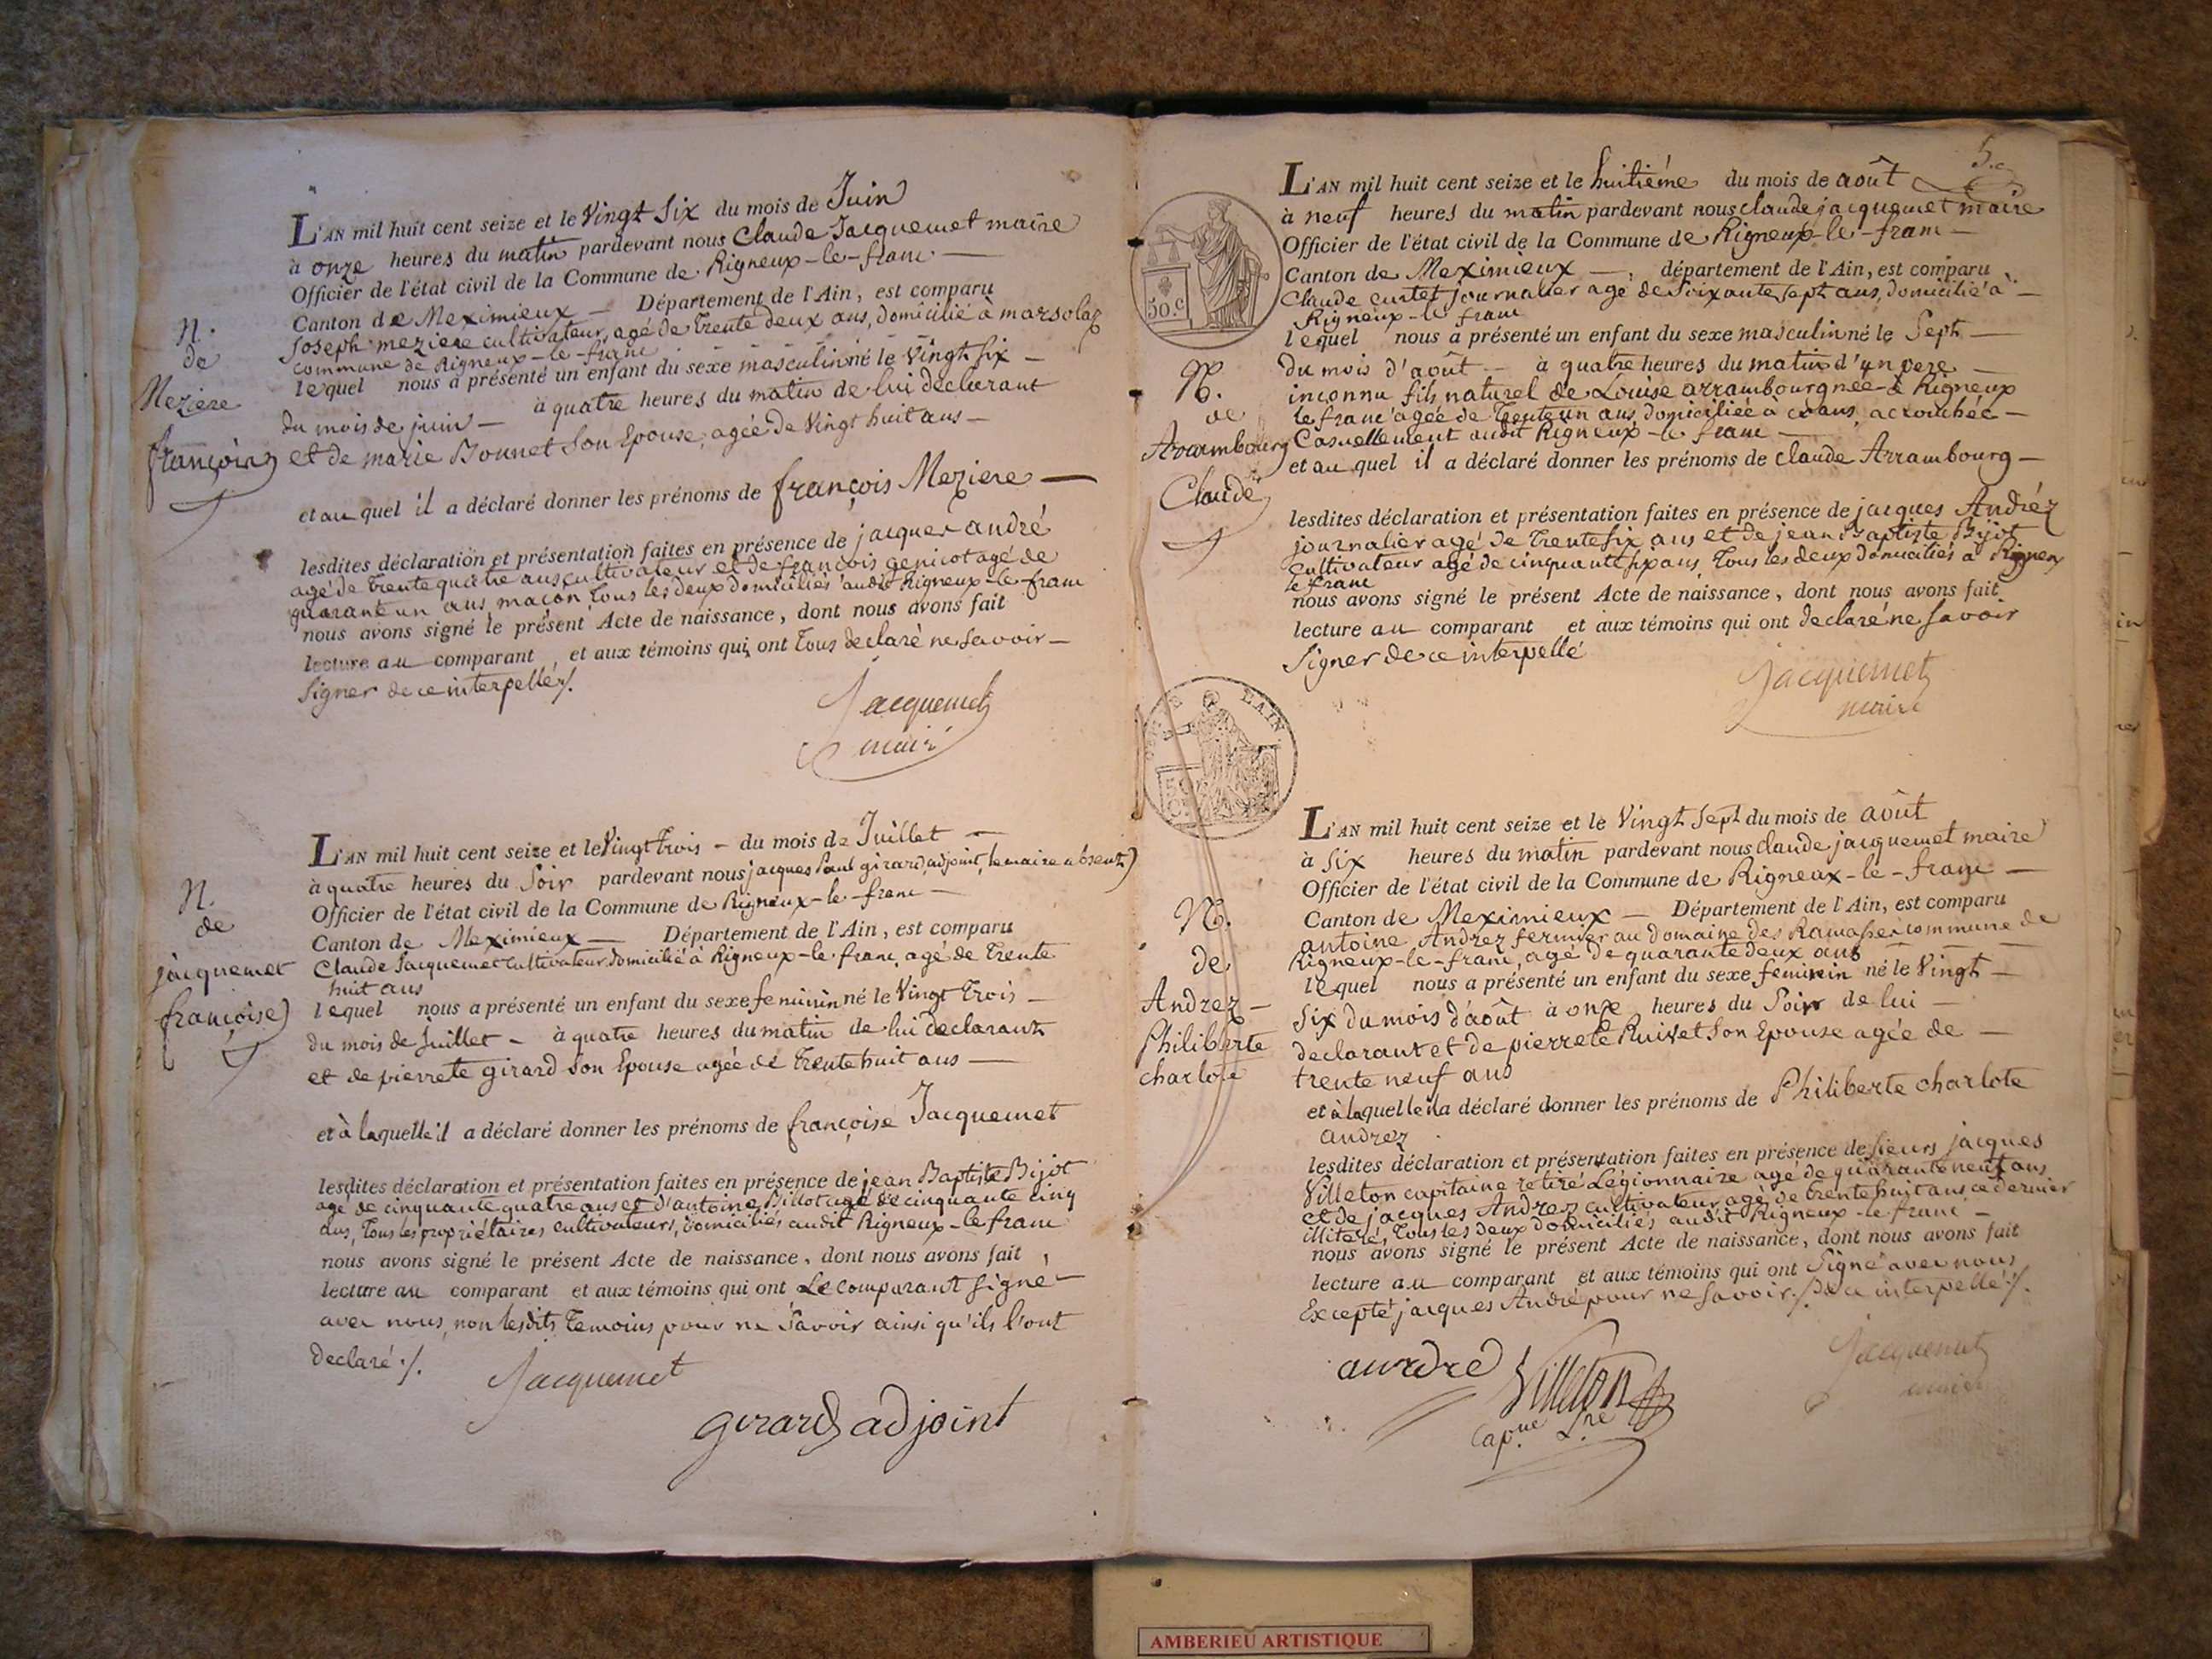 L'AN mil huit cent seize et le Vingt Six du mois de Juin
à onze heures du matin pardevant nous Claude Jacquemet maire
Officier de l'état civil de la Commune de Rigneux-le-franc
Canton de Meximieux Département de l'Ain, est comparu
Joseph meziere cultivateur, agé de trente deux ans, domicilié à marsolaz
commune de Rigneux-le-franc
lequel nous a présenté un enfant du sexe masculin né le Vingt Six
du mois de juin à quatre heures du matin de lui declarant
et de marie Bonnet Son Epouse, agée de Vingt huit ans
et au quel il a déclaré donner les prénoms de françois Meziere
lesdites déclaration et présentation faites en présence de jacques andré
agé de trente quatre ans cultivateur et de françois genicot agé de
quarante un ans maçon, tous les deux domiciliés audit Rigneux-le-franc
nous avons signé le présent Acte de naissance, dont nous avons fait
lecture au comparant, et aux témoins qui ont tous declaré ne Savoir
Signer de ce interpellés/.
Jacquemet
maire
N.
de
Meziere
françois
L'AN mil huit cent seize et le Vingt trois du mois de Juillet
à quatre heures du Soir pardevant nous jacques Paul girard, adjoint, le maire absent
Officier de l'état civil de la Commune de Rigneux-le-franc
Canton de Meximieux Département de l'Ain, est comparu
Claude Jacquemet Cultivateur, domicilié à Rigneux-le-franc, agé de trente
huit ans
lequel nous a présenté un enfant du sexe feminin né le Vingt trois
du mois de Juillet à quatre heures du matin de lui declarant
et de pierrete girard Son Epouse agée de trente huit ans
et à laquelle il a déclaré donner les prénoms de françoise Jacquemet
lesdites déclaration et présentation faites en présence de jean Baptiste Bijot
agé de cinquante quatre ans et d'antoine Billot agé de cinquante cinq
ans, tous les propriétaires cultivateurs, domiciliés audit Rigneux-le franc
nous avons signé le présent Acte de naissance, dont nous avons fait
lecture au comparant et aux témoins qui ont Le comparant signé
avec nous, non lesdits temoins pour ne Savoir ainsi qu'ils l'ont
declaré:/.
Jacquemet
girard adjoint
N.
de
jacquemet
françoise
5.e
L'AN mil huit cent seize et le huitiéme du mois de août
à neuf heures du matin pardevant nous claude jacquemet maire
Officier de l'état civil de la Commune de Rigneux-le-franc
Canton de Meximieux, département de l'Ain, est comparu
Claude curtet journalier agé de Soixante Sept ans, domicilié à
Rigneux-le franc
lequel nous a présenté un enfant du sexe masculin né le Sept
du mois d'août à quatre heures du matin d'un pere
inconnu fils naturel de Louise arrambourg née à Rigneux
le franc agée de trente un ans, domiciliée à crans, accouchée
Casuellement audit Rigneux-le franc
et au quel il a déclaré donner les prénoms de claude Arrambourg
lesdites déclaration et présentation faites en présence de jacques Andréz
journalier agé de trente six ans et de jean Baptiste Bijot
Cultivateur agé de cinquante six ans, tous les deux domiciliés à Rigneux
le franc
nous avons signé le présent Acte de naissance, dont nous avons fait
lecture au comparant et aux témoins qui ont declaré ne Savoir
Signer de ce interpellé
Jacquemet
maire
50.c
N.
de
Arrambourg
Claude
EAIN
50
C.
L'AN mil huit cent seize et le Vingt Sept du mois de août
à Six heures du matin pardevant nous claude jacquemet maire
Officier de l'état civil de la Commune de Rigneax-le-franc
Canton de Meximieux Département de l'Ain, est comparu
antoine Andrez fermier au domaine des Ramasses commune de
Rigneux-le-franc, agé de quarante deux ans
lequel nous a présenté un enfant du sexe feminin né le Vingt
Six du mois d'août à onze heures du Soir de lui
declarant et de pierrete Ruivet Son Epouse agée de
trente neuf ans
et à laquelle il a déclaré donner les prénoms de Philiberte charlote
andrez
lesdites déclaration et présentation faites en présence de sieurs jacques
Villeton capitaine retiré Légionnaire agé de quarante neuf ans
et de jacques Andrez cultivateur agé de trente huit ans ce dernier
illiteré, tous les deux domiciliés audit Rigneux-le franc
nous avons signé le présent Acte de naissance, dont nous avons fait
lecture au comparant et aux témoins qui ont Signé avec nous
Excepté jacques André pour ne Savoir./. de ce interpellé:/.
andré
Villeton
Cap.ne L.re
Jacquemet
maire
N.
de
Andrez
Philiberte
charlote
AMBERIEU ARTISTIQUE